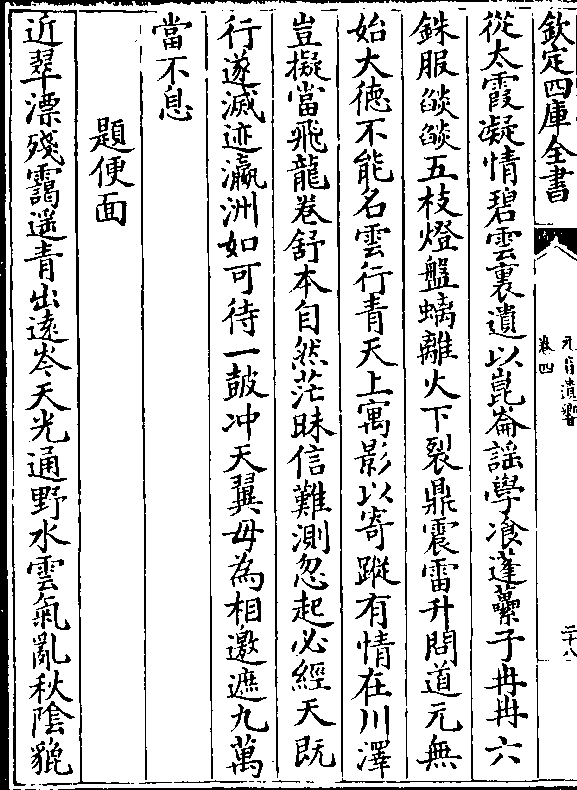 欽定四庫全書
元音遺響
卷四
二十八
從太霞凝情碧雲裏遺以崑崙謡學飡蓬蘽子冉冉六
銖服燄燄五枝燈盤螭離火下裂鼎震雷升問道元無
始大徳不能名雲行青天上寓影以寄蹤有情在川澤
豈擬當飛龍卷舒本自然茫昧信難測忽起必經天既
行遂滅迹瀛洲如可待一鼓冲天翼毋為相邀遮九萬
當不息
題便面
近翠漂殘靄遥青出遠岑天光通野水雲氣亂秋隂貌